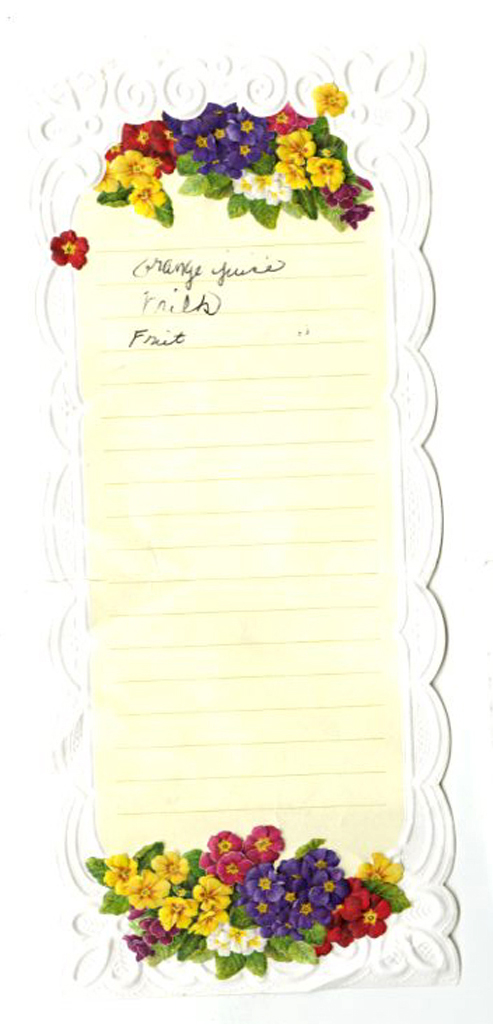 Orange juice
Milk
Fruit